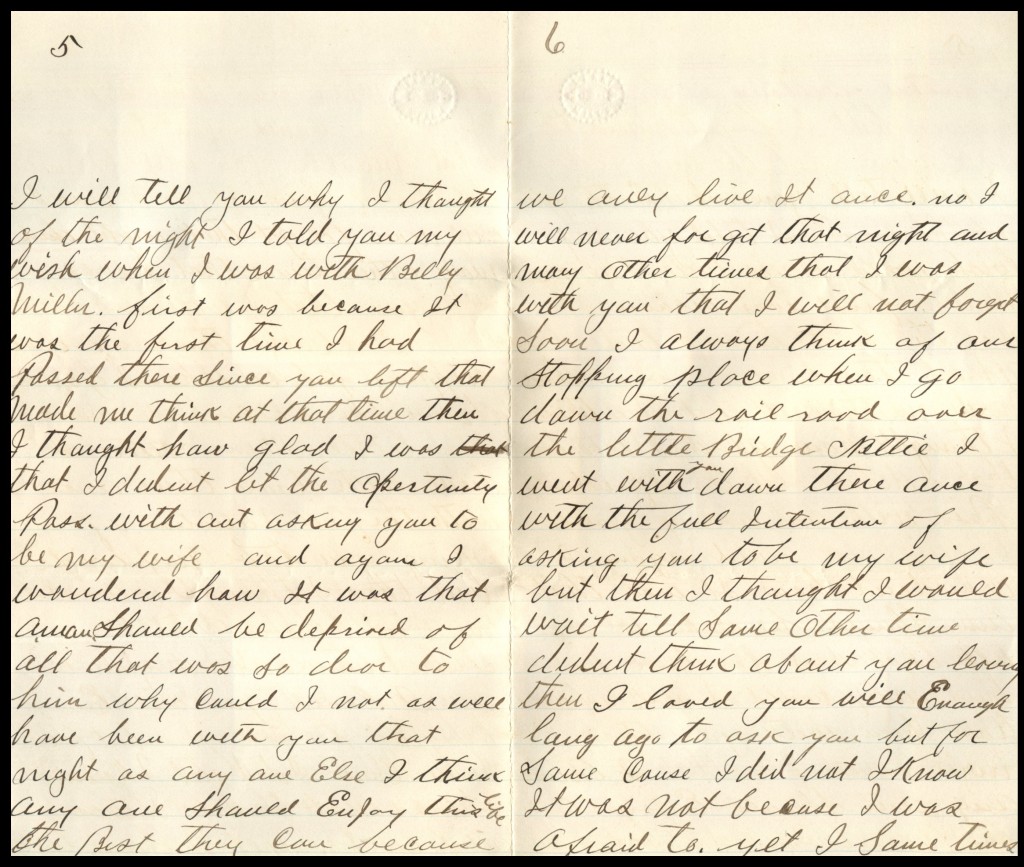 5
I will tell you why I thought
of the night I told you my
wish when I was with Billy
Miller. first was because It
was the first time I had
Passed there Since you left that
made me think at that time then
I thought how glad I was that
that I dident let the Opertunity
Pass. with out asking you to
be my wife and again I
wondered how It was that
a man Should be deprived of
all that was so dear to
him why Could I not as well
have been with you that
night as any one Else I think
any one Should Enjoy this life
the Best they Can because
6
we only live It once. no I
will never forget that night and
many Other times that I was
with you that I will not forget
Soon I always think of our
Stopping place when I go
down the rail road over
the little Bridge Nettie I
went with you down there once
with the full Intention of
asking you to be my wife
but then I thought I would
wait till Some Other time
dident think about you leaving
then I loved you well Enough
long ago to ask you but for
Some Cause I did not I Know
It was not because I was
afraid to. yet I Some times